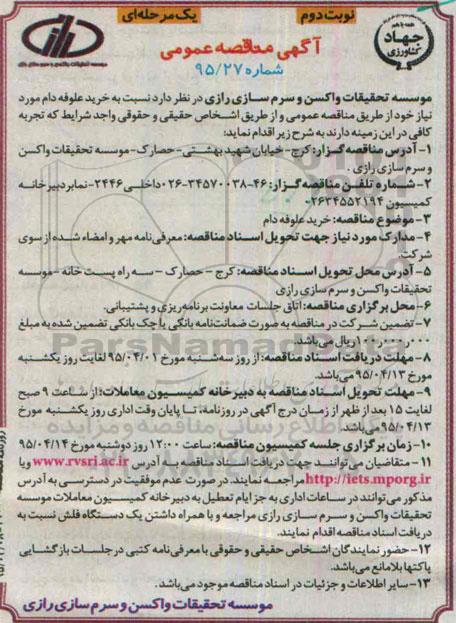 نوبت دوم
یک مرحله‌ای
همه با هم
جهاد
کشاورزی
آگهی مناقصه عمومی
شماره ۹۵/۲۷
موسسه تحقیقات واکسن و سرم سازی رازی در نظر دارد نسبت به خرید علوفه دام مورد
نیاز خود از طریق مناقصه عمومی و از طریق اشخاص حقیقی و حقوقی واجد شرایط که تجربه
کافی در این زمینه دارند به شرح زیر اقدام نماید:
۱- آدرس مناقصه گزار: کرج - خیابان شهید بهشتی - حصارک - موسسه تحقیقات واکسن
و سرم سازی رازی.
۲- شماره تلفن مناقصه گزار: ۴۶-۳۴۵۷۰۰۳۸-۰۲۶ داخلی ۲۴۴۶- نمابر دبیرخانه
کمیسیون ۰۲۶۳۴۵۵۲۱۹۴
۳- موضوع مناقصه: خرید علوفه دام
۴- مدارک مورد نیاز جهت تحویل اسناد مناقصه: معرفی نامه مهر و امضاء شده از سوی
شرکت.
۵- آدرس محل تحویل اسناد مناقصه: کرج - حصارک - سه راه پست خانه - موسسه
تحقیقات واکسن و سرم سازی رازی
۶- محل برگزاری مناقصه: اتاق جلسات معاونت برنامه ریزی و پشتیبانی.
۷- تضمین شرکت در مناقصه به صورت ضمانت نامه بانکی یا چک بانکی تضمین شده به مبلغ
ریال می باشد.
۸- مهلت دریافت اسناد مناقصه: از روز سه شنبه مورخ ۹۵/۰۴/۰۱ لغایت روز یکشنبه
مورخ ۹۵/۰۴/۱۳ می باشد.
۹- مهلت تحویل اسناد مناقصه به دبیرخانه کمیسیون معاملات: از ساعت ۹ صبح
لغایت ۱۵ بعد از ظهر از زمان درج آگهی در روزنامه، تا پایان وقت اداری روز یکشنبه مورخ
۹۵/۰۴/۱۳ می باشد.
۱۰- زمان برگزاری جلسه کمیسیون مناقصه: ساعت ۱۲:۰۰ روز دوشنبه مورخ ۹۵/۰۴/۱۴
۱۱- متقاضیان می توانند جهت دریافت اسناد مناقصه به آدرس www.rvsri.ac.ir و یا
http://iets.mporg.ir مراجعه نمایند. در صورت عدم موفقیت در دسترسی به آدرس
مذکور می توانند در ساعات اداری به جز ایام تعطیل به دبیرخانه کمیسیون معاملات موسسه
تحقیقات واکسن و سرم سازی رازی مراجعه و با همراه داشتن یک دستگاه فلش نسبت به
دریافت اسناد مناقصه اقدام نمایند.
۱۲- حضور نمایندگان اشخاص حقیقی و حقوقی با معرفی نامه کتبی در جلسات بازگشایی
پاکتها بلامانع می باشد.
۱۳- سایر اطلاعات و جزئیات در اسناد مناقصه موجود می باشد.
موسسه تحقیقات واکسن و سرم سازی رازی